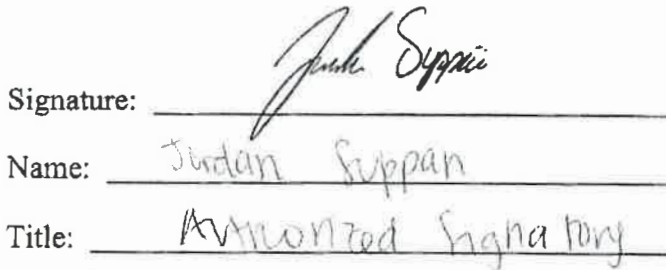 Signature: Suppan
Name: Jordan Suppan
Title: Authorized Signatory